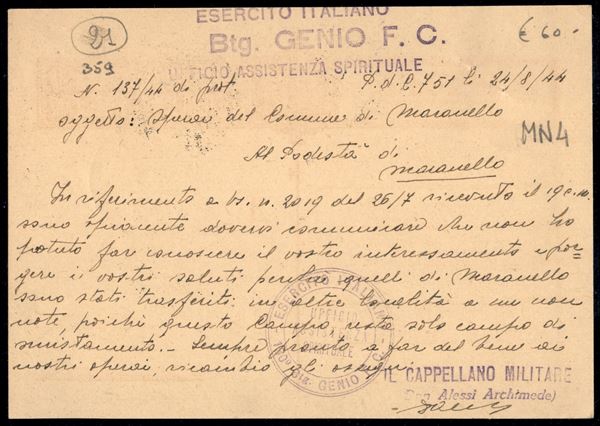 91
359
ESERCITO ITALIANO
Btg. GENIO F. C.
UFFICIO ASSISTENZA SPIRITUALE
€ 60.-
N. 137/44 di prot. P.d.C. 751 li 24/8/44
oggetto: operai del Comune di Maranello
MN4
Al Podestà di
Maranello
In riferimento a vs. n. 2019 del 26/7 ricevuto il 19 c.m.
sono spiacente dovervi comunicare che non ho
potuto far conoscere il vostro interessamento e por-
gere i vostri saluti perchè quelli di Maranello
sono stati trasferiti in altre località a me non
note, poichè questo Campo resta solo campo di
smistamento. - Sempre pronto a far del bene ai
nostri operai, ricambio gli ossequi
ESERCITO ITALIANO
UFFICIO
ASSISTENZA
SPIRITUALE
Btg. GENIO
IL CAPPELLANO MILITARE
(Don Alessi Archimede)